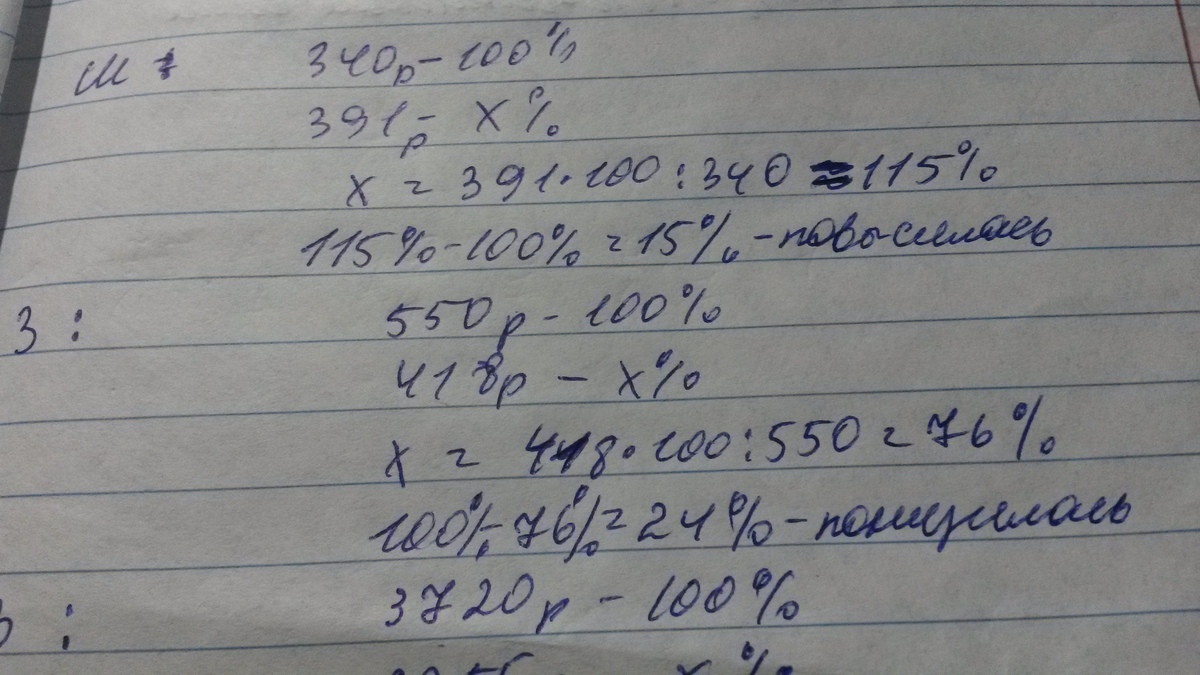 Ш : 340р - 100%
391р - х%
х = 391·100:340 = 115%
115% - 100% = 15% - повысилась
З : 550р - 100%
418р - х%
х = 418·100:550 = 76%
100% - 76% = 24% - понизилась
: 3720р - 100%
х%